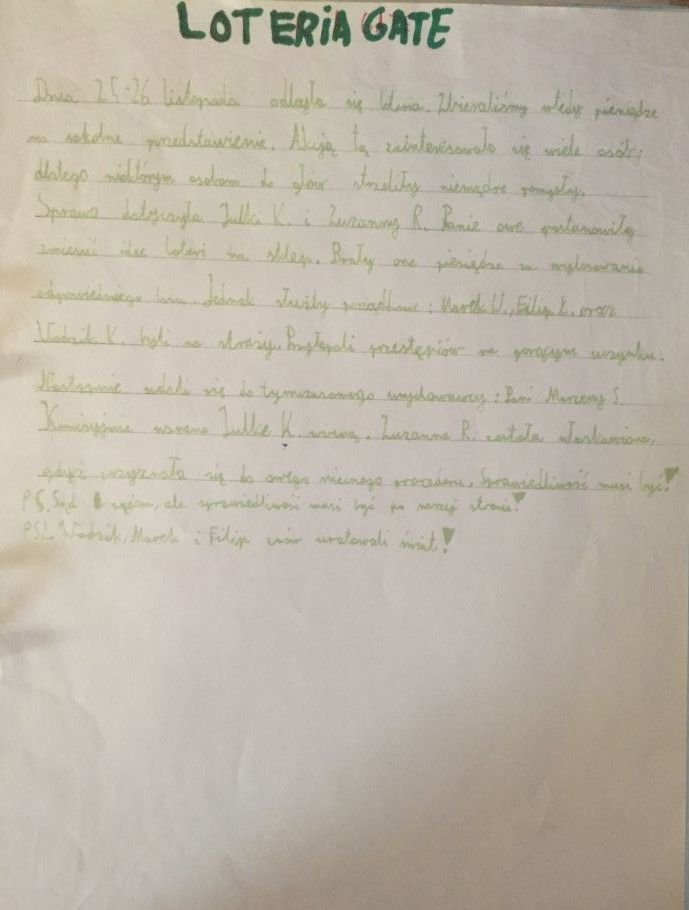 LOTERIA GATE
Dnia 25-26 listopada odbyła się loteria. Zbieraliśmy wtedy pieniądze
na szkolne przedstawienie. Akcją tą zainteresowało się wiele osób,
dlatego niektórym osobom do głów strzeliły niemądre pomysły.
Sprawa dotyczyła Julki K. i Zuzanny R. Panie owe postanowiły
zmienić ideę loteri na sklep. Brały one pieniądze za wylosowanie
odpowiedniego losu. Jednak służby porządkowe: Marek W., Filip K. oraz
Wadzik K. byli na straży. Przyłapali przestępców na gorącym uczynku.
Następnie udali się do tymczasowego wychowawcy: Pani Marzeny S.
Komisyjnie uznano Julkę K. winną. Zuzanna R. została ułaskawiona,
gdyż przyznała się do owego niecnego procederu. Sprawiedliwość musi być!
PS. Sąd sądem, ale sprawiedliwość musi być po naszej stronie!
PS2. Wadzik, Marek i Filip znów uratowali świat!